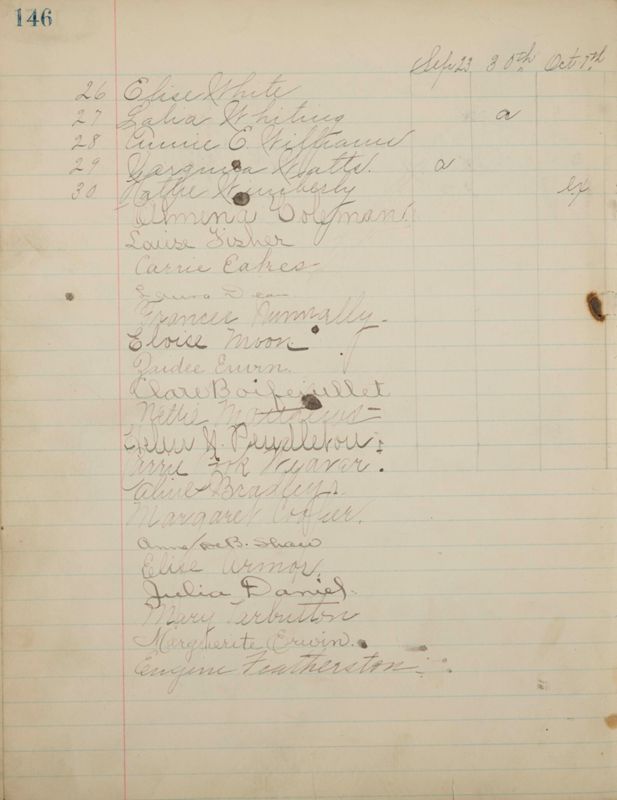 146
Sep 23 30th Oct 7th
26 Elise White
27 Lalia Whiting a
28 Annie E. Williams
29 Watts. a
30 Hattie Wimberly ex
Almena Coleman.
Louise Fisher
Carrie Eakes
Laura Dean
Frances Nunnally.
Eloise Moon
Zaidee Erwin.
Clare Boifeuillet
Nettie
Helen Pendleton.
Carrie Weaver.
Alice Bradley.
Margaret
Anne DeB. Shaw
Elise Armor.
Julia Daniel.
Mary Tarbutton
Marguerite Erwin.
Eugene Featherston